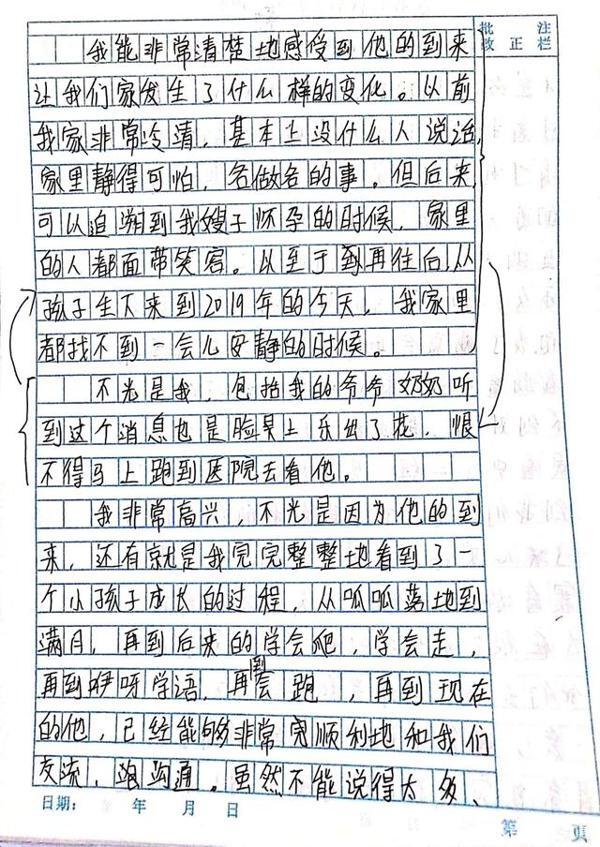 批 注
改 正 栏
我能非常清楚地感受到他的到来
让我们家发生了什么样的变化。以前
我家非常冷清，基本上没什么人说话，
家里静得可怕，各做各的事。但后来，
可以追溯到我嫂子怀孕的时候，家里
的人都面带笑容。以至于到再往后，从
孩子生下来到2019年的今天，我家里
都找不到一会儿安静的时候。
不光是我，包括我的爷爷奶奶听
到这个消息也是脸上乐出了花，恨
不得马上跑到医院去看他。
我非常高兴，不光是因为他的到
来，还有就是我完完整整地看到了一
个小孩子成长的过程，从呱呱落地到
满月，再到后来的学会爬，学会走，
再到咿呀学语，再到会跑，再到现在
的他，已经能够非常顺利地和我们
交流，沟通。虽然不能说得太多、
日期： 年 月 日
第 页